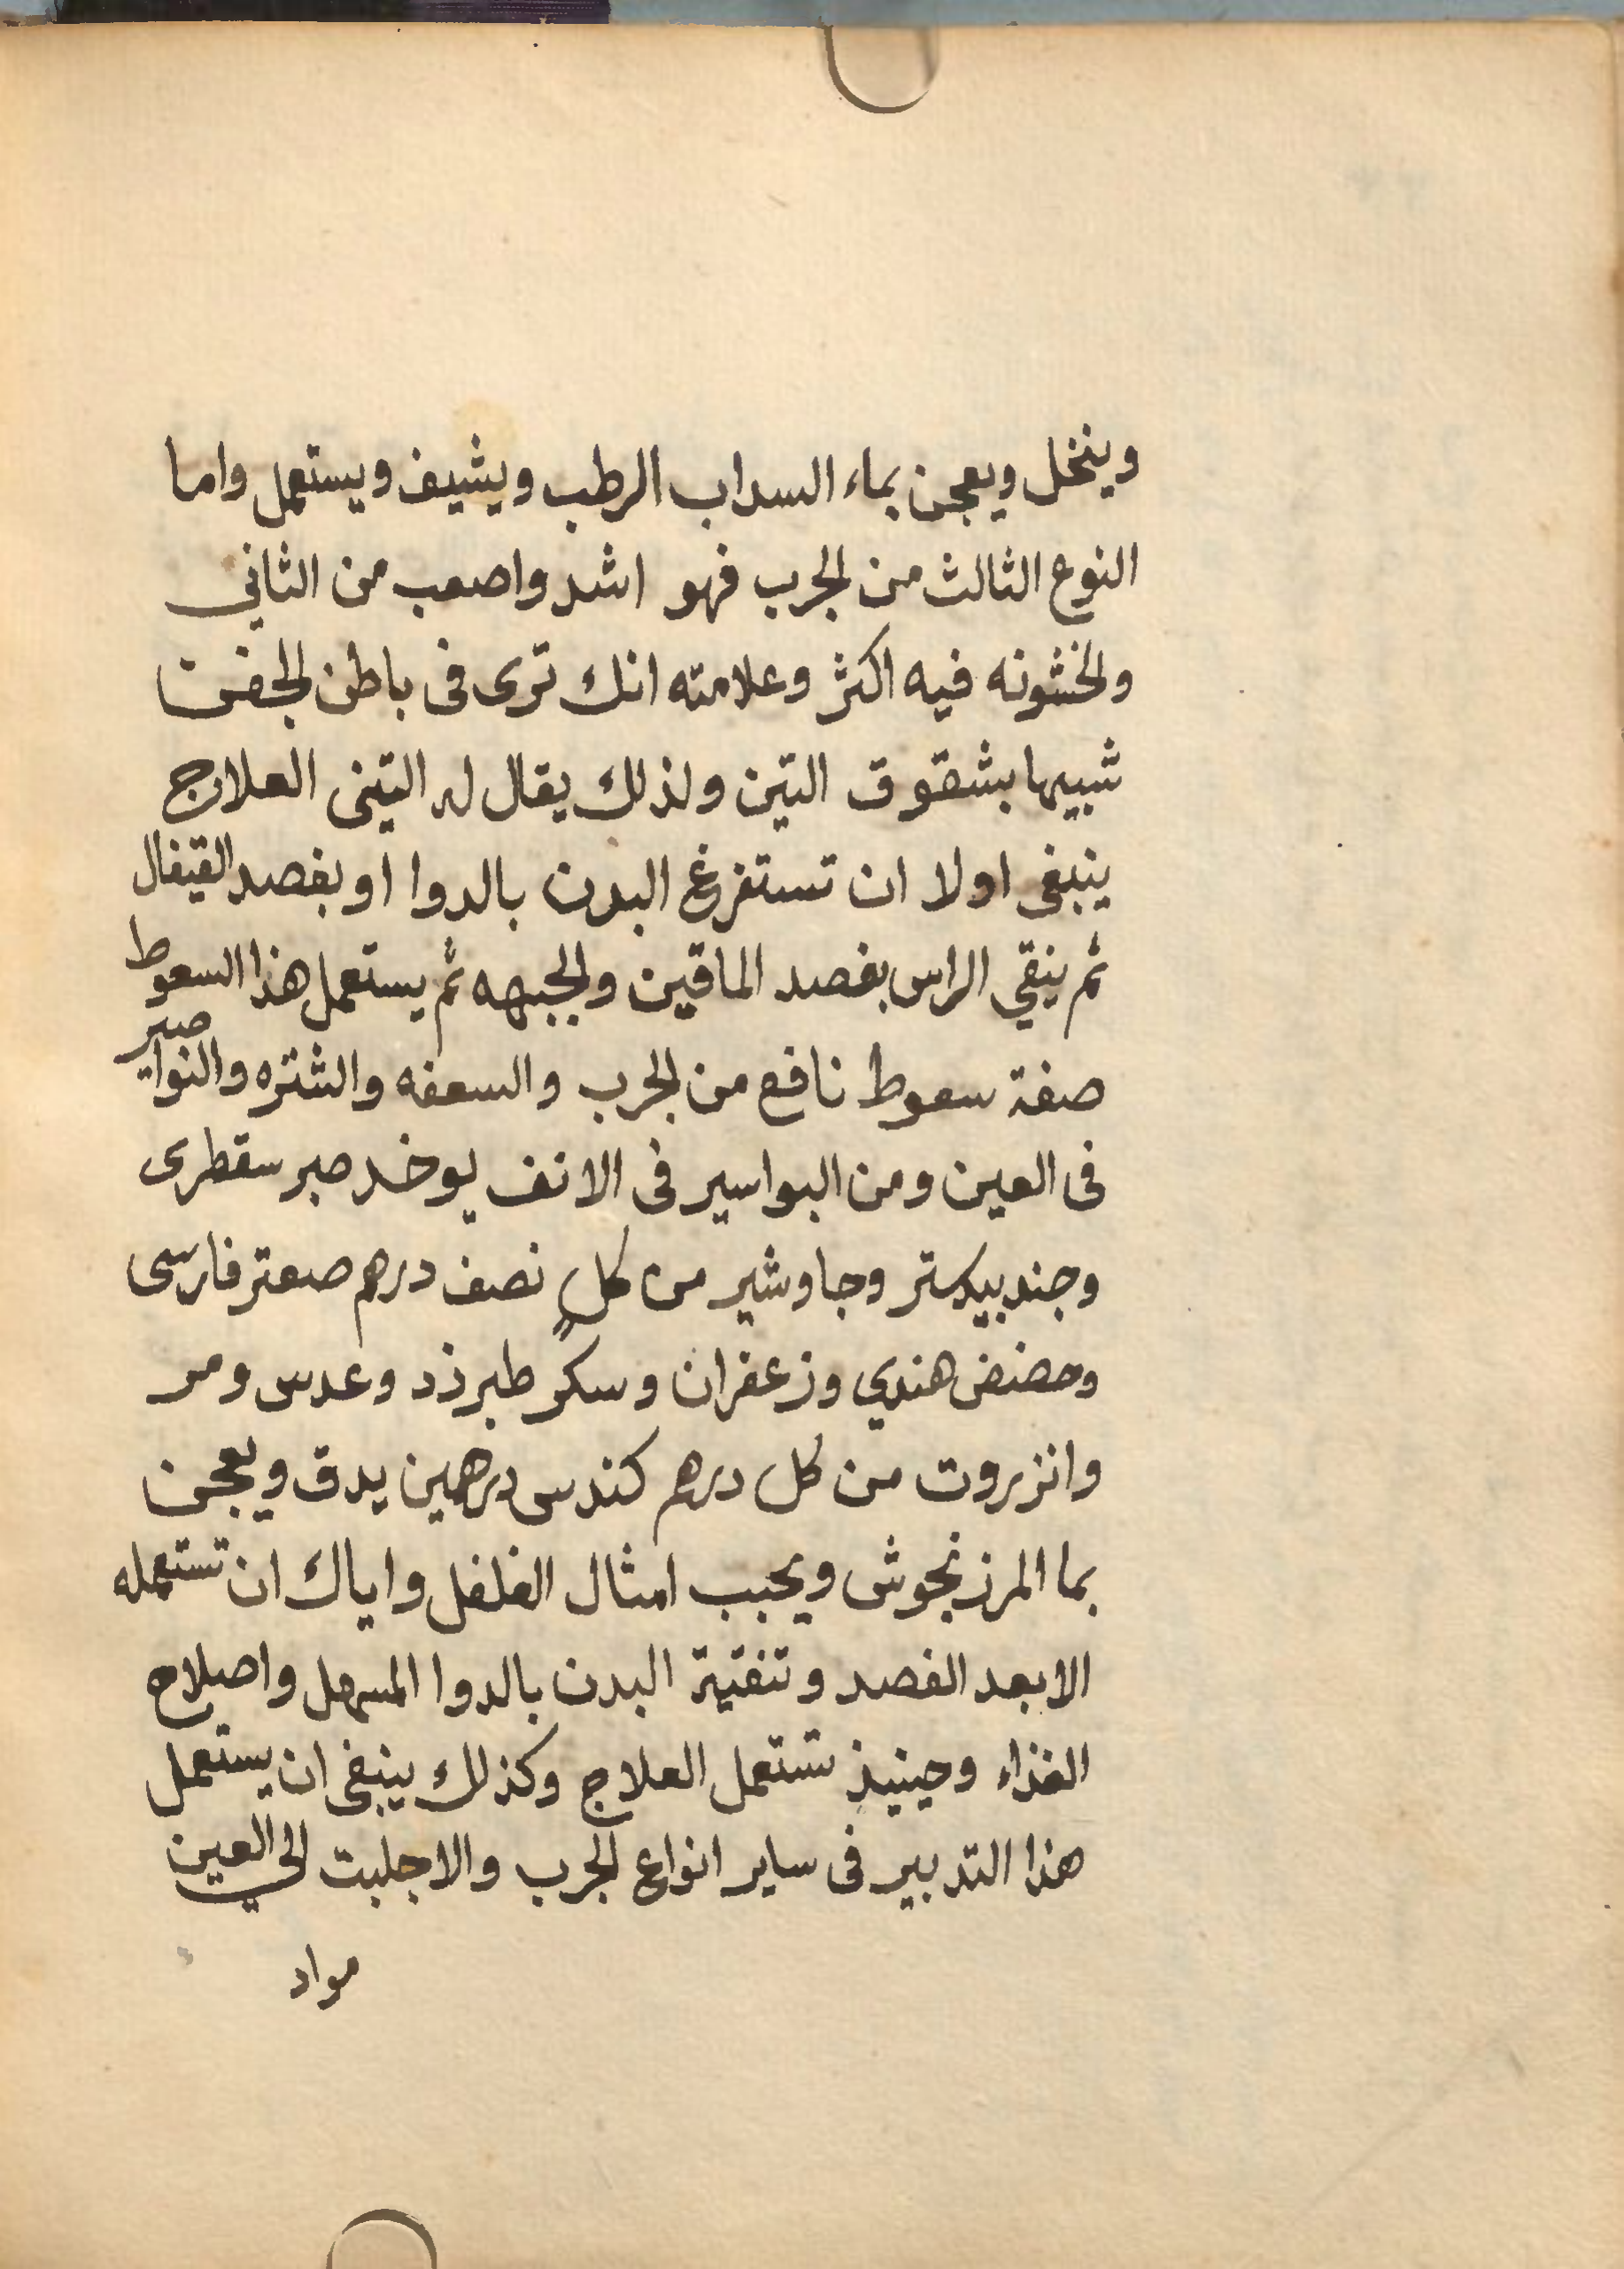 وينخل ويعجن بماء السداب الرطب ويشيف ويستعمل واما
النوع الثالث من الجرب فهو اشد واصعب من الثاني
والخشونه فيه اكثر وعلامته انك ترى فى باطن الجفن
شبيها بشقوق التين ولذلك يقال له التينى العلاج
ينبغى اولا ان تستفرغ البدن بالدوا او بفصد القيفال
ثم ينقي الراس بفصد الماقين والجبهه ثم يستعمل هذا السعوط
صفة سعوط نافع من الجرب والسعفه والشتره والنواصير
فى العين ومن البواسير فى الانف يوخد صبر سقطرى
وجندبيدستر وجاوشير من كل نصف درهم صعتر فارسى
وحضض هندي وزعفران وسكر طبرزد وعدس ومر
وانزروت من كل درهم كندس درهمين يدق ويعجن
بما المرزنجوش ويحبب امثال الفلفل واياك ان تستعمله
الا بعد الفصد وتنقية البدن بالدوا المسهل واصلاح
الغذاء وحينيذ تستعمل العلاج وكذلك ينبغى ان يستعمل
هذا التدبير فى ساير انواع الجرب والا جلبت الى العين
مواد